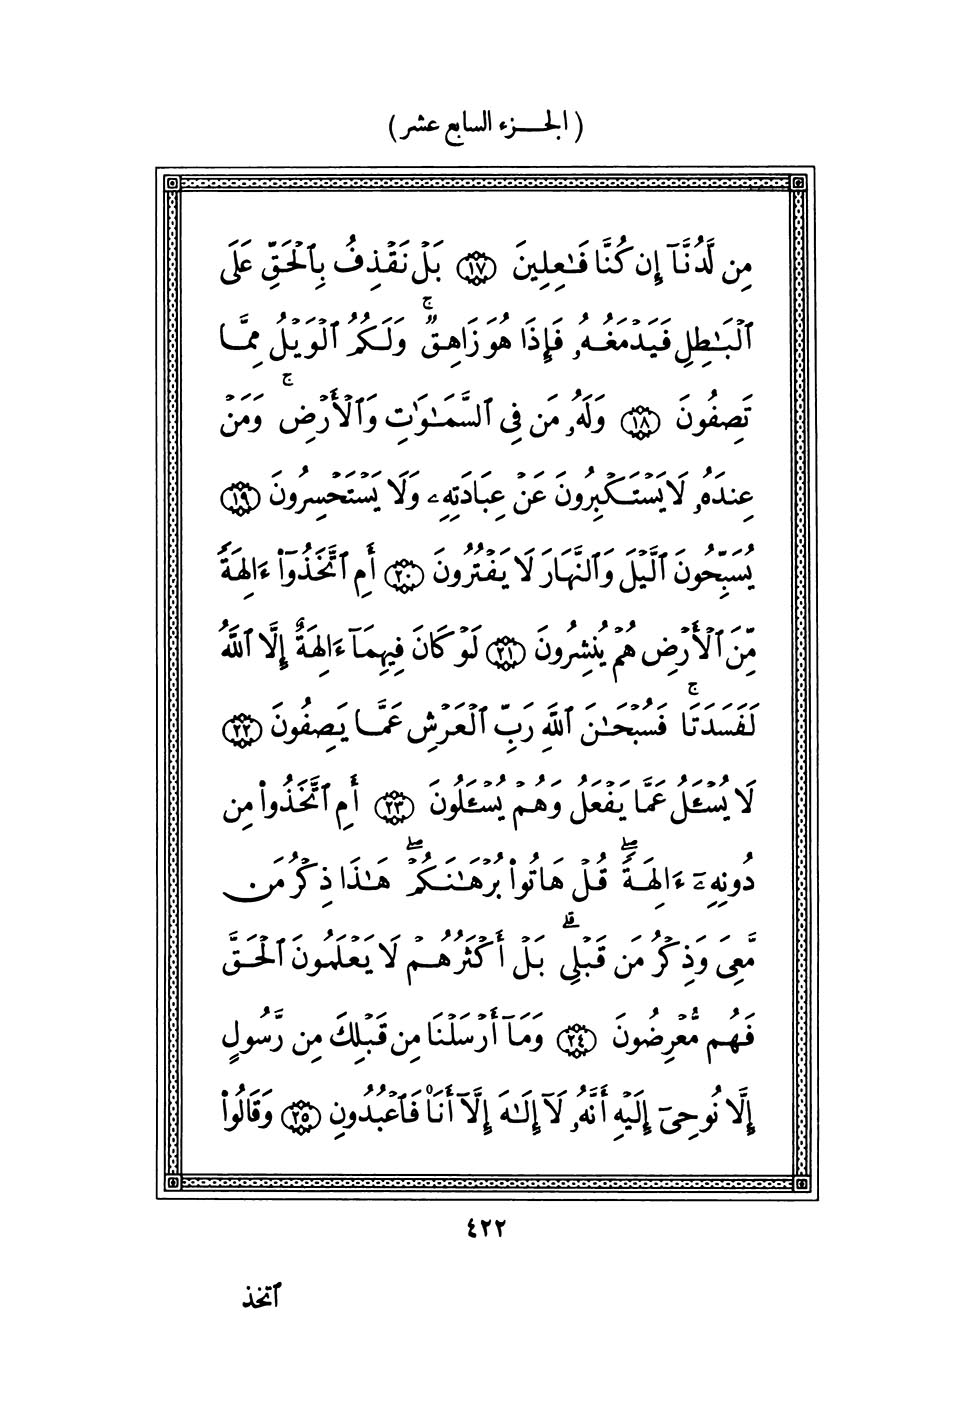 ( الجــزء السابع عشر )
مِن لَّدُنَّآ إِن كُنَّا فَٰعِلِينَ ۝١٧ بَلْ نَقْذِفُ بِٱلْحَقِّ عَلَى
ٱلْبَٰطِلِ فَيَدْمَغُهُۥ فَإِذَا هُوَ زَاهِقٌ ۚ وَلَكُمُ ٱلْوَيْلُ مِمَّا
تَصِفُونَ ۝١٨ وَلَهُۥ مَن فِى ٱلسَّمَٰوَٰتِ وَٱلْأَرْضِ ۚ وَمَنْ
عِندَهُۥ لَا يَسْتَكْبِرُونَ عَنْ عِبَادَتِهِۦ وَلَا يَسْتَحْسِرُونَ ۝١٩
يُسَبِّحُونَ ٱلَّيْلَ وَٱلنَّهَارَ لَا يَفْتُرُونَ ۝٢٠ أَمِ ٱتَّخَذُوٓا۟ ءَالِهَةً
مِّنَ ٱلْأَرْضِ هُمْ يُنشِرُونَ ۝٢١ لَوْ كَانَ فِيهِمَآ ءَالِهَةٌ إِلَّا ٱللَّهُ
لَفَسَدَتَا ۚ فَسُبْحَٰنَ ٱللَّهِ رَبِّ ٱلْعَرْشِ عَمَّا يَصِفُونَ ۝٢٢
لَا يُسْـَٔلُ عَمَّا يَفْعَلُ وَهُمْ يُسْـَٔلُونَ ۝٢٣ أَمِ ٱتَّخَذُوا۟ مِن
دُونِهِۦٓ ءَالِهَةً ۖ قُلْ هَاتُوا۟ بُرْهَٰنَكُمْ ۖ هَٰذَا ذِكْرُ مَن
مَّعِىَ وَذِكْرُ مَن قَبْلِى ۗ بَلْ أَكْثَرُهُمْ لَا يَعْلَمُونَ ٱلْحَقَّ
فَهُم مُّعْرِضُونَ ۝٢٤ وَمَآ أَرْسَلْنَا مِن قَبْلِكَ مِن رَّسُولٍ
إِلَّا نُوحِىٓ إِلَيْهِ أَنَّهُۥ لَآ إِلَٰهَ إِلَّآ أَنَا۠ فَٱعْبُدُونِ ۝٢٥ وَقَالُوا۟
٤٢٢
ٱتخذ